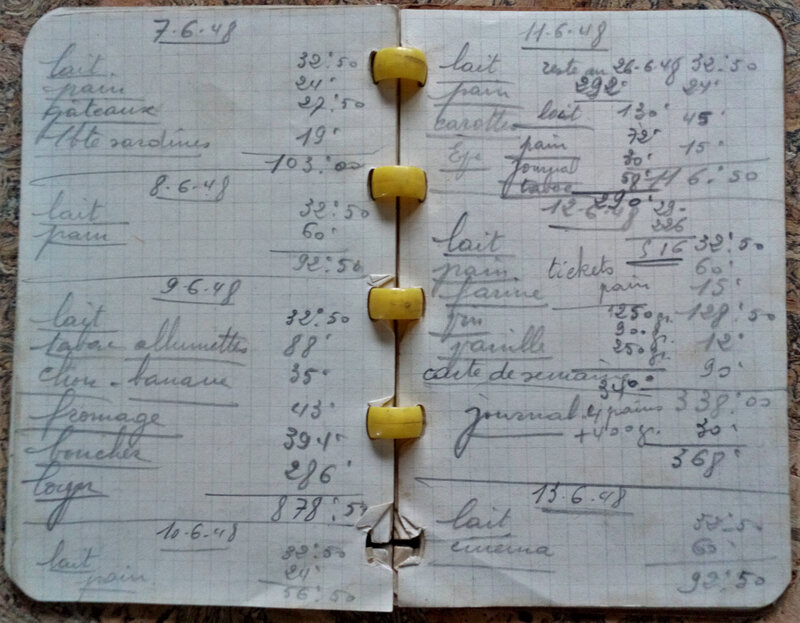 7.6.48
lait 32:50
pain 24'
gâteaux 27:50
1 bte sardines 19'
103:00
8.6.48
lait 32:50
pain 60'
92:50
9.6.48
lait 32:50
tabac allumettes 88'
chou - banane 35'
fromage 43'
boucher 394'
loyer 286'
878:50
10.6.48
lait 32:50
pain 24'
56:50
11.6.48
lait reste au 26.6.48 32:50
pain 292' 24'
carottes lait 130' 45'
pain 72' 15'
journal 30'
tabac 58' 116:50
290'
12.6.48
226
lait 516 32:50
pain tickets 60'
farine pain 15'
1250 gr. 128:50
vanille 900 gr. 12'
250 gr.
carte de semaine 90'
340'
338:00
journal 4 pains 30'
+400 gr.
368'
13.6.48
lait 32:50
cinema 60'
92:50